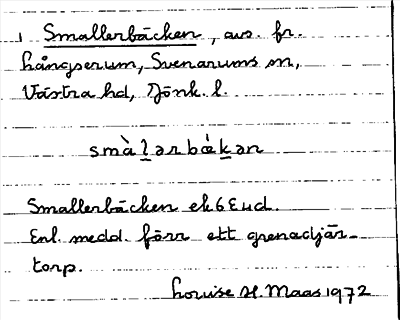 1 Smallerbäcken, avs. fr.
Långserum, Svenarums sn,
Västra hd, Jönk. l.
smàl̲ərbæ̀k̲ən
Smallerbäcken ek 6 E u d.
Enl. medd. förr ett grenadjär-
torp.
Louise H. Maas 1972